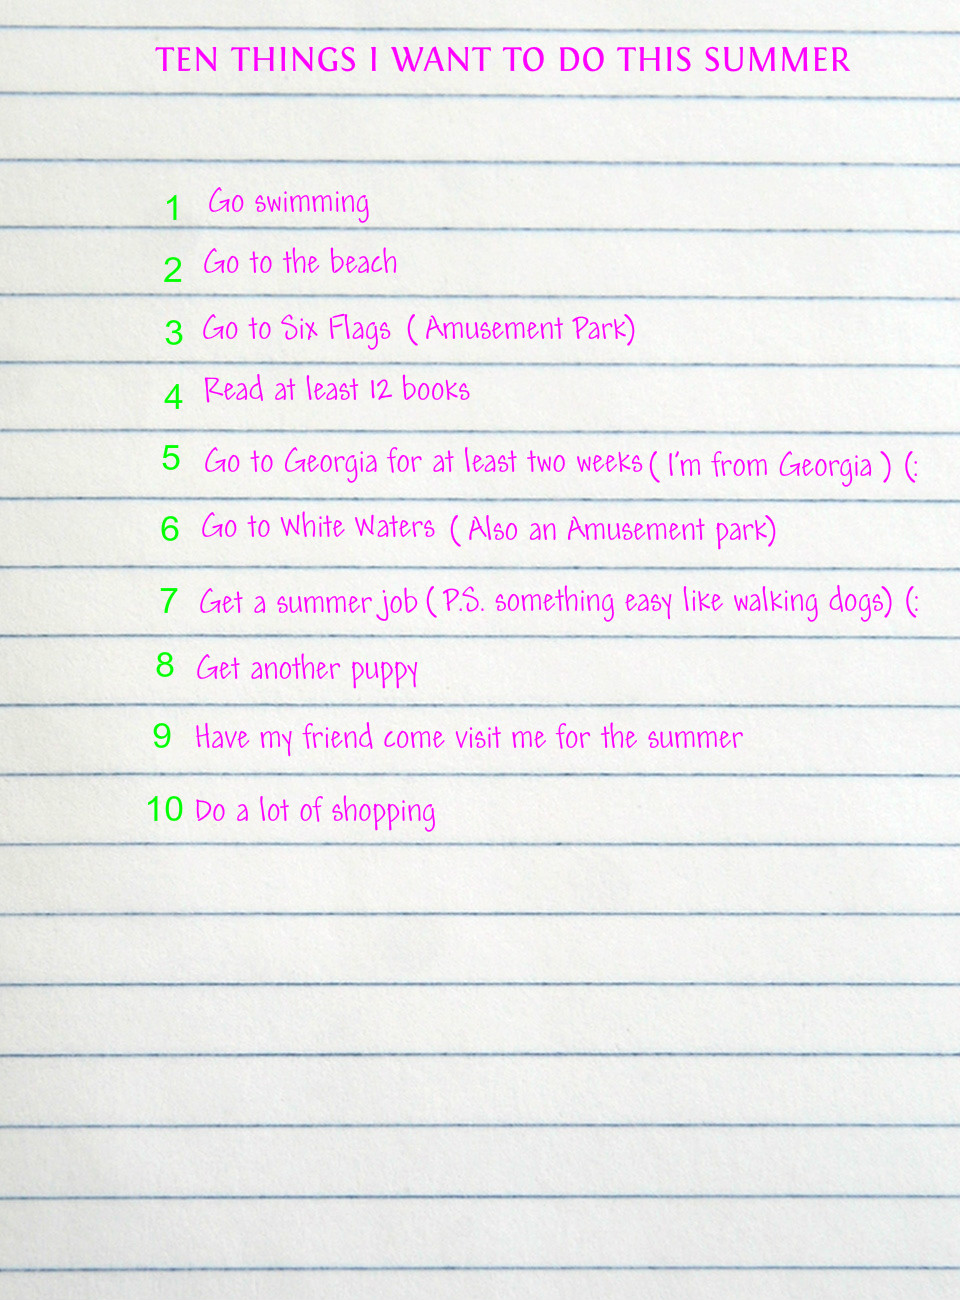 TEN THINGS I WANT TO DO THIS SUMMER
1 Go swimming
2 Go to the beach
3 Go to Six Flags ( Amusement Park)
4 Read at least 12 books
5 Go to Georgia for at least two weeks ( I'm from Georgia ) (:
6 Go to White Waters ( Also an Amusement park)
7 Get a summer job ( P.S. something easy like walking dogs) (:
8 Get another puppy
9 Have my friend come visit me for the summer
10 Do a lot of shopping